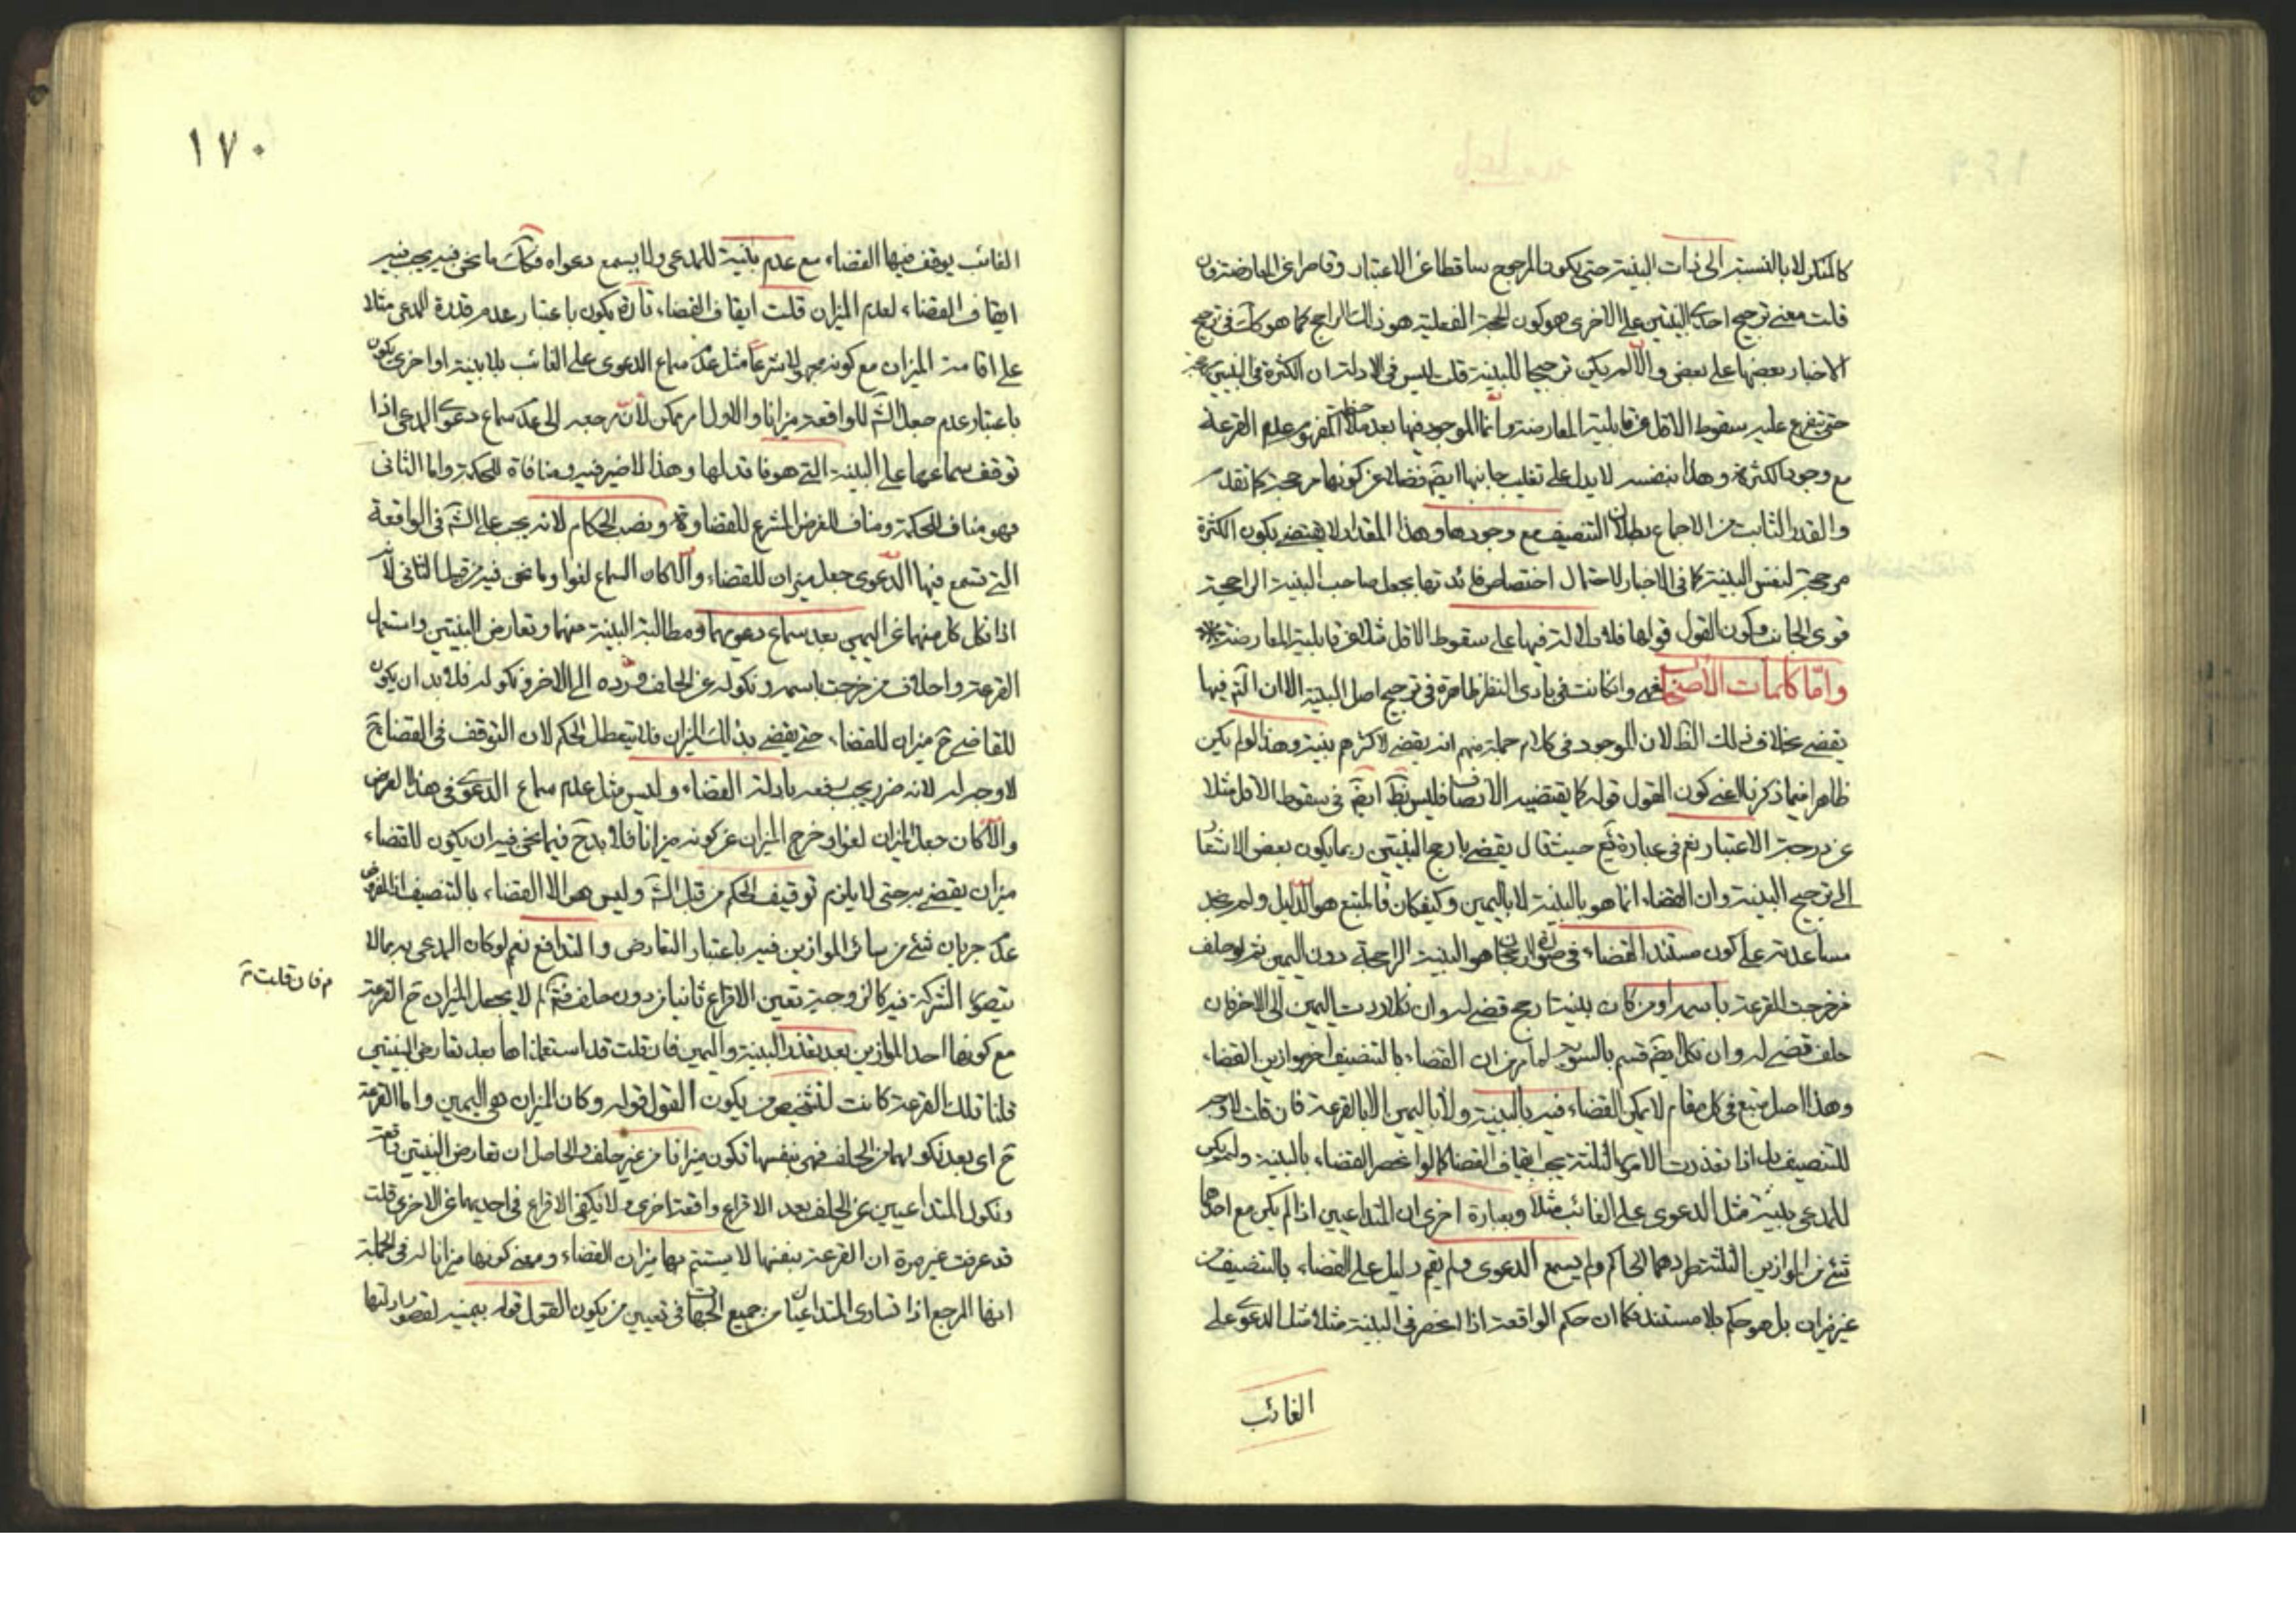 كالمنكر لا بالنسبة الى ذات البينة حتى يكون المرجوح ساقطا عن الاعتبار وقاصرا عن المعارضة فان
قلت معنى ترجيح احدى البينتين على الاخرى هو كون الحجة الفعلية هو ذلك الراجح كما هو كك في ترجيح
الاخبار بعضها على بعض والا لم يكن ترجيحا للبينة قلت ليس في الادلة ان الكثرة في البينة
حتى يتفرع عليه سقوط الاقل عن قابلية المعارضة وانما الموجود فيها بعد عدم القرعة
مع وجود الكثرة وهذا بنفسه لا يدل على تغليب جانبها ايضا فضلا عن كونها مرجحة كما تقدم
والقدر الثابت من الاجماع بطلان التنصيف مع وجودها وهذا المقدار لا يقتضي بكون الكثرة
مرجحة لنفس البينة كما في الاخبار لاحتمال اختصاص فائدتها بجعل صاحب البينة الراجحة
قوى الجانب وكون القول قولها فلا دلالة فيها على سقوط الاقل مثلا عن قابلية المعارضة
واما كلمات الاصحاب فهي وان كانت في بادى النظر ظاهرة في ترجيح اصل البينة الا ان التم فيها
يقضي بخلاف ذلك الظ لان الموجود في كلام جملة منهم انه يقضي لاكثرهم بينة وهذا لو لم يكن
ظاهرا فيما ذكرنا اعني كون القول قوله كما يقتضيه الانصاف فليس بظ ايضا في سقوط الاقل مثلا
عن درجة الاعتبار نعم في عبارة حيث قال يقضي بارجح البينتين ربما يكون بعض الاشعار
الى ترجيح البينة وان القضاء انما هو بالبينة لا باليمين وكيف كان فالمتبع هو الدليل ولم نجد
مساعدته على كون مستند القضاء في صورة الرجحان هو البينة الراجحة دون اليمين ثم لو حلف
من خرجت القرعة باسمه او من كان بينتا رجح قضى له وان نكل ردت اليمين الى الاخر فان
حلف قضى له وان نكل ايضا قسم بالسوية لما مر من ان القضاء بالتنصيف اخر موازين القضاء
وهذا اصل متبع في كل مقام لا يمكن القضاء فيه بالبينة ولا باليمين الا بالقرعة فان قلت لا وجه
للتنصيف بل اذا تعذرت الامور الثلثة يجب ايقاف القضا كما لو انحصر القضاء بالبينة ولم يكن
للمدعي بينة مثل الدعوى على الغائب مثلا وبعبارة اخرى ان المتداعيين اذا لم يكن مع احدهما
شئ من الموازين الثلثة طردهما الحاكم ولم يسمع الدعوى ولم يقم دليل على القضاء بالتنصيف من
غير ميزان بل هو حكم بلا مستند فكما ان حكم الواقعة اذا انحصر في البينة مثلا مثل الدعوى على
الغائب
١٧٠
الغائب يوقف فيها القضاء مع عدم بينة للمدعي ولا يسمع دعواه فكك ما نحن فيه يجب فيه
ايقاف القضاء لعدم الميزان قلت ايقاف القضاء تارة يكون باعتبار عدم قدرة المدعى مثلا
على اقامة الميزان مع كونه مجعولا شرعا مثل عدم سماع الدعوى على الغائب بلا بينة واخرى يكون
باعتبار عدم جعل الش للواقعة ميزانا والاول امر ممكن لان مرجعه الى عدم سماع دعوى المدعي اذا
توقف سماعها على البينة التي هو فاقد لها وهذا لا ضير فيه ومنافاة للحكمة واما الثانى
فهو مناف للحكمة ومناف للغرض المشرع للقضاوة ونصب الحكام لانه يجب على الش في الواقعة
التي تسمع فيها الدعوى جعل ميزان للقضاء والا لكان السماع لغوا وما نحن فيه من قبيل الثانى لانه
اذا نكل كل منهما عن اليمين بعد سماع دعويهما ومطالبة البينة منهما وتعارض البينتين واستعمال
القرعة واحلاف من خرجت باسمه ونكوله عن الحلف ورده الى الاخر ونكوله فلا بد ان يكون
للقاضي ح ميزان للقضاء حتى يقضي بذلك الميزان فلا يتعطل الحكم لان التوقف في القضا ح
لا وجه له لانه ضرر يجب دفعه بادلة القضاء وليس مثل عدم سماع الدعوى في هذا الفرض
والا لكان جعل الميزان لغوا وخرج الميزان عن كونه ميزانا فلا بد ح فيما نحن فيه ان يكون للقضاء
ميزان يقضي به حتى لا يلزم توقيف الحكم من قبل الش وليس هو الا القضاء بالتنصيف اذ المفروض
عدم جريان شئ من سائر الموازين فيه باعتبار التعارض والتدافع نعم لو كان المدعى به مما لا
يتصور الشركة فيه كالزوجية تعين الاقراع ثانيا من دون حلف لم لا يجعل الميزان ح القرعة
م فان قلت
مع كونها احد الموازين بعد تعذر البينة واليمين فان قلت قد استعملناها بعد تعارض البينتين
قلنا تلك القرعة كانت لتشخيص من يكون القول قوله وكان الميزان هي اليمين واما القرعة
ح اى بعد نكولهما عن الحلف فهي بنفسها تكون ميزانا من غير حلف والحاصل ان تعارض البينتين واقعة
ونكول المتداعيين عن الحلف بعد الاقراع واقعة اخرى ولا يكفي الاقراع في احديهما عن الاخرى قلت
قد عرفت غير مرة ان القرعة بنفسها لا يستتم بها ميزان القضاء ومعنى كونها ميزانا له في الجملة
انها المرجع اذا تساوى المتداعيان من جميع الجهات في تعيين من يكون القول قوله بيمينه لقصور ادلتها